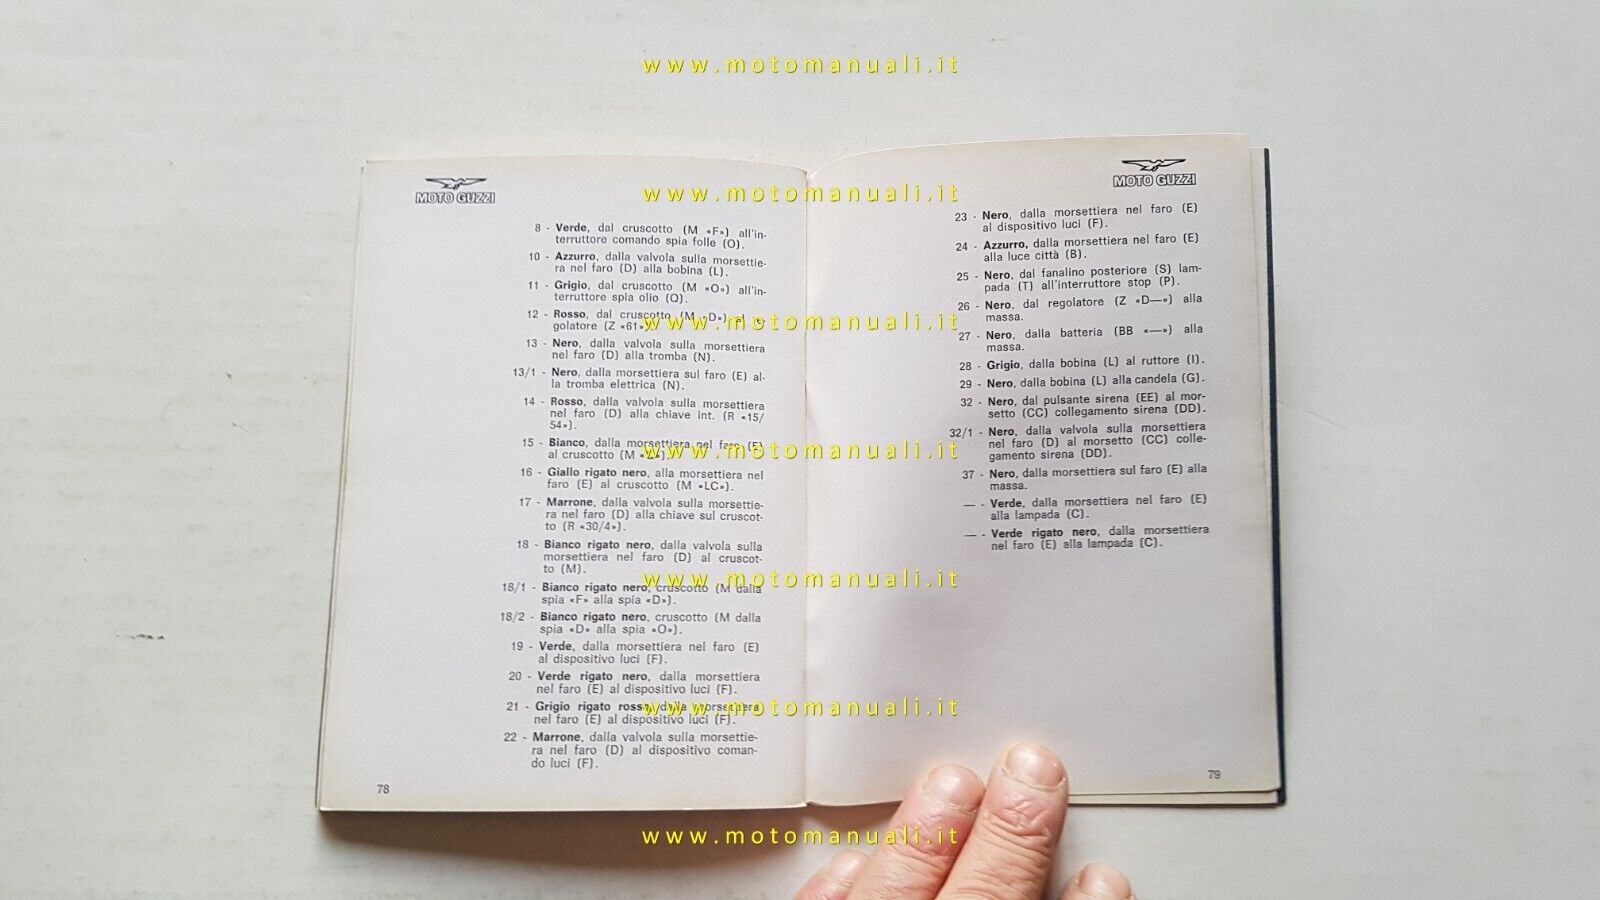 www.motomanuali.it
MOTO GUZZI
8 - Verde, dal cruscotto (M «F») all'in-
terruttore comando spia folle (O).
10 - Azzurro, dalla valvola sulla morsettie-
ra nel faro (D) alla bobina (L).
11 - Grigio, dal cruscotto (M «O») all'in-
terruttore spia olio (Q).
12 - Rosso, dal cruscotto (M «D») al
golatore (Z «61»
13 - Nero, dalla valvola sulla morsettiera
nel faro (D) alla tromba (N).
13/1 - Nero, dalla morsettiera sul faro (E) al-
la tromba elettrica (N).
14 - Rosso, dalla valvola sulla morsettiera
nel faro (D) alla chiave int. (R «15/
54»).
15 - Bianco, dalla morsettiera nel faro (E)
al cruscotto (M
16 - Giallo rigato nero, alla morsettiera nel
faro (E) al cruscotto (M «LC»).
17 - Marrone, dalla valvola sulla morsettie-
ra nel faro (D) alla chiave sul cruscot-
to (R «30/4»).
18 - Bianco rigato nero, dalla valvola sulla
morsettiera nel faro (D) al cruscot-
to (M).
18/1 - Bianco rigato nero, cruscotto (M dalla
spia «F» alla spia «D»).
18/2 - Bianco rigato nero, cruscotto (M dalla
spia «D» alla spia «O»).
19 - Verde, dalla morsettiera nel faro (E)
al dispositivo luci (F).
20 - Verde rigato nero, dalla morsettiera
nel faro (E) al dispositivo luci (F).
21 - Grigio rigato rosso, dalla morsettiera
nel faro (E) al dispositivo luci (F).
22 - Marrone, dalla valvola sulla morsettie-
ra nel faro (D) al dispositivo coman-
do luci (F).
78
MOTO GUZZI
23 - Nero, dalla morsettiera nel faro (E)
al dispositivo luci (F).
24 - Azzurro, dalla morsettiera nel faro (E)
alla luce città (B).
25 - Nero, dal fanalino posteriore (S) lam-
pada (T) all'interruttore stop (P).
26 - Nero, dal regolatore (Z «D—») alla
massa.
27 - Nero, dalla batteria (BB «—») alla
massa.
28 - Grigio, dalla bobina (L) al ruttore (I).
29 - Nero, dalla bobina (L) alla candela (G).
32 - Nero, dal pulsante sirena (EE) al mor-
setto (CC) collegamento sirena (DD).
32/1 - Nero, dalla valvola sulla morsettiera
nel faro (D) al morsetto (CC) colle-
gamento sirena (DD).
37 - Nero, dalla morsettiera sul faro (E) alla
massa.
— - Verde, dalla morsettiera nel faro (E)
alla lampada (C).
— - Verde rigato nero, dalla morsettiera
nel faro (E) alla lampada (C).
79
www.motomanuali.it
www.motomanuali.it
www.motomanuali.it
www.motomanuali.it
www.motomanuali.it
www.motomanuali.it